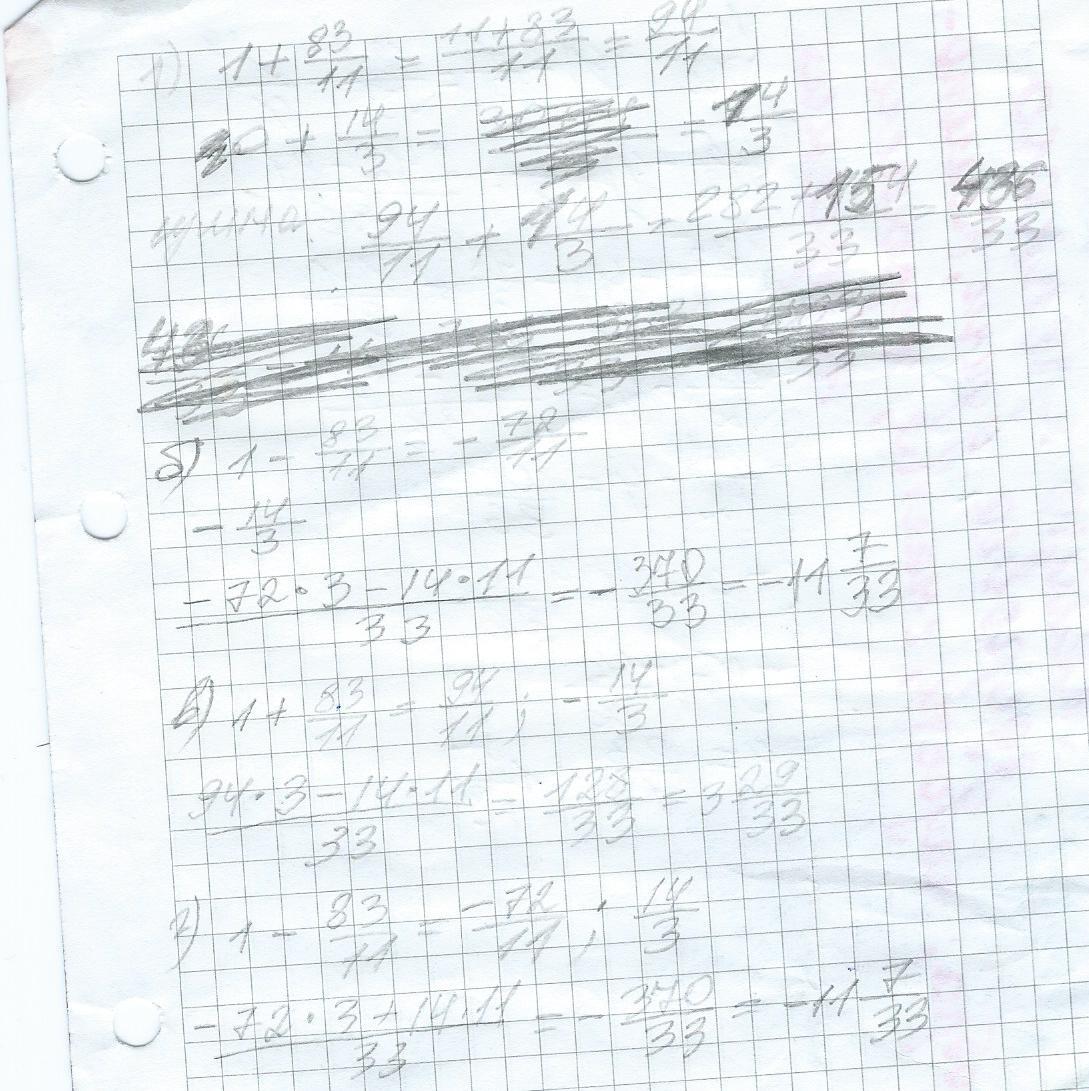 1) 1 + 83/11 = (11+83)/11 = 94/11
0 + 14/3 = = 14/3
сумма: 94/11 + 14/3 = (282 + 154)/33 = 436/33
б) 1 - 83/11 = - 72/11
- 14/3
(-72·3 - 14·11)/33 = - 370/33 = -11 7/33
в) 1 + 83/11 = 94/11 ; - 14/3
(94·3 - 14·11)/33 = 128/33 = 3 29/33
г) 1 - 83/11 = -72/11 ; 14/3
(-72·3 + 14·11)/33 = - 370/33 = -11 7/33